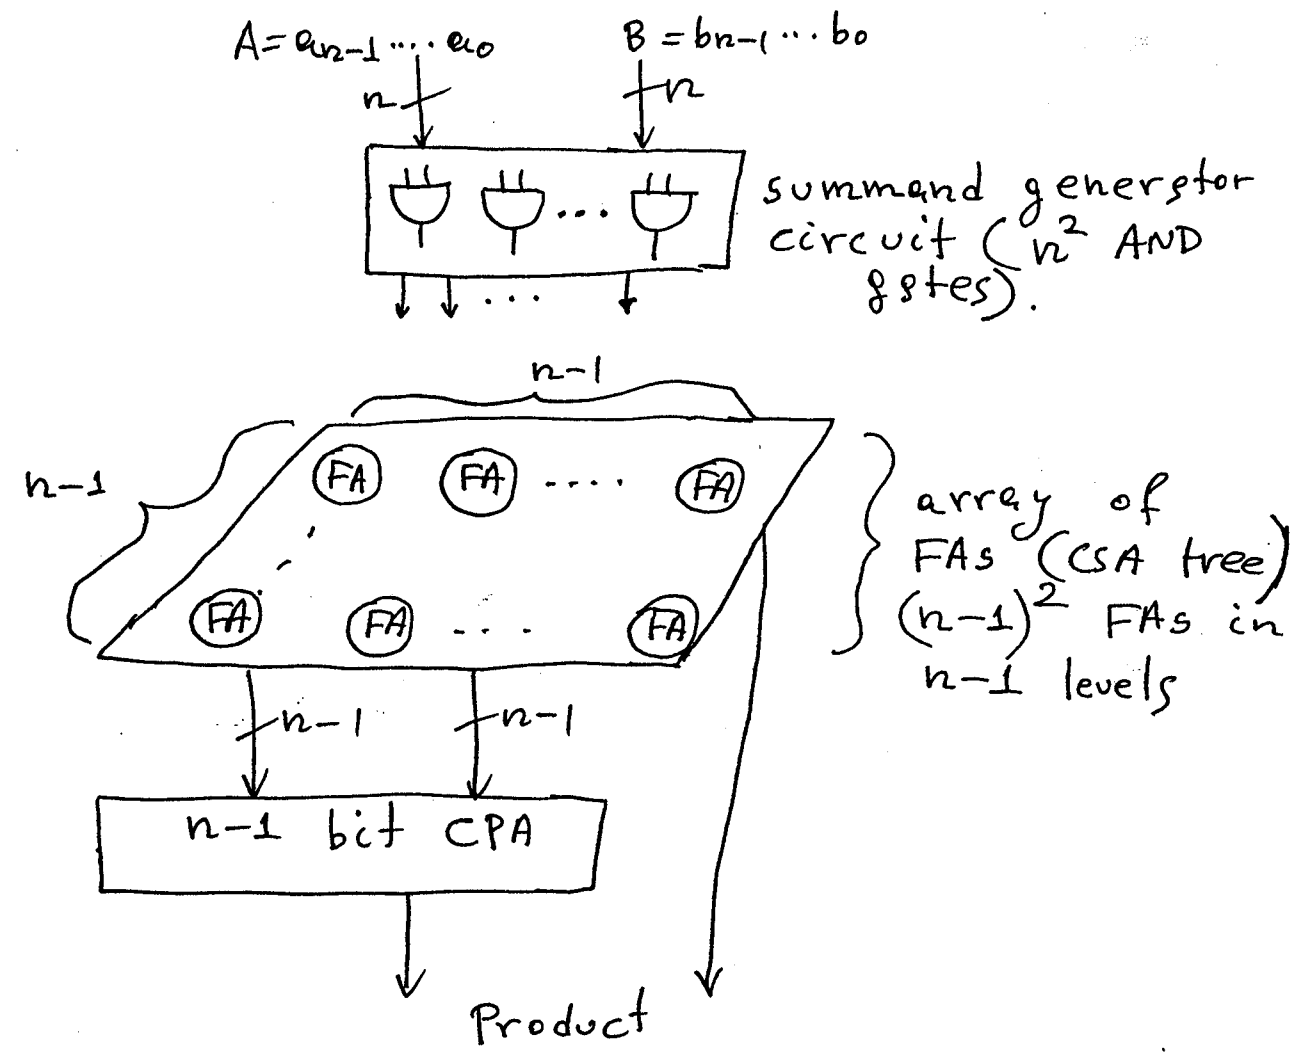 A = aₙ₋₁ .... a₀
B = bₙ₋₁ ... b₀
n
n
summand generator
circuit (n² AND
gates).
...
...
n-1
n-1
FA FA .... FA
FA FA ....  FA
array of
FAs (CSA tree)
(n-1)² FAs in
n-1 levels
n-1
n-1
n-1 bit CPA
Product